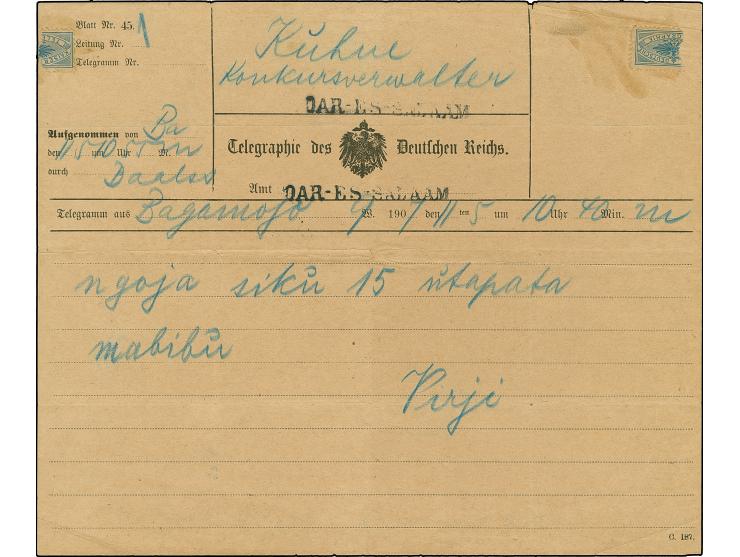 Blatt Nr. 45.
Leitung Nr. 1
Telegramm Nr.
Kuhne
Konkursverwalter
DAR-ES-SALAAM
Aufgenommen von Ba
den 11/5 um 10 Uhr 55 M. m
durch
Telegraphie des Deutschen Reichs.
Amt DAR-ES-SALAAM
Telegramm aus Bagamojo W. 1907 den 11ten 5 um 10 Uhr 40 Min. m
ngoja siku 15 utapata
mabibu
Virji
C. 187.